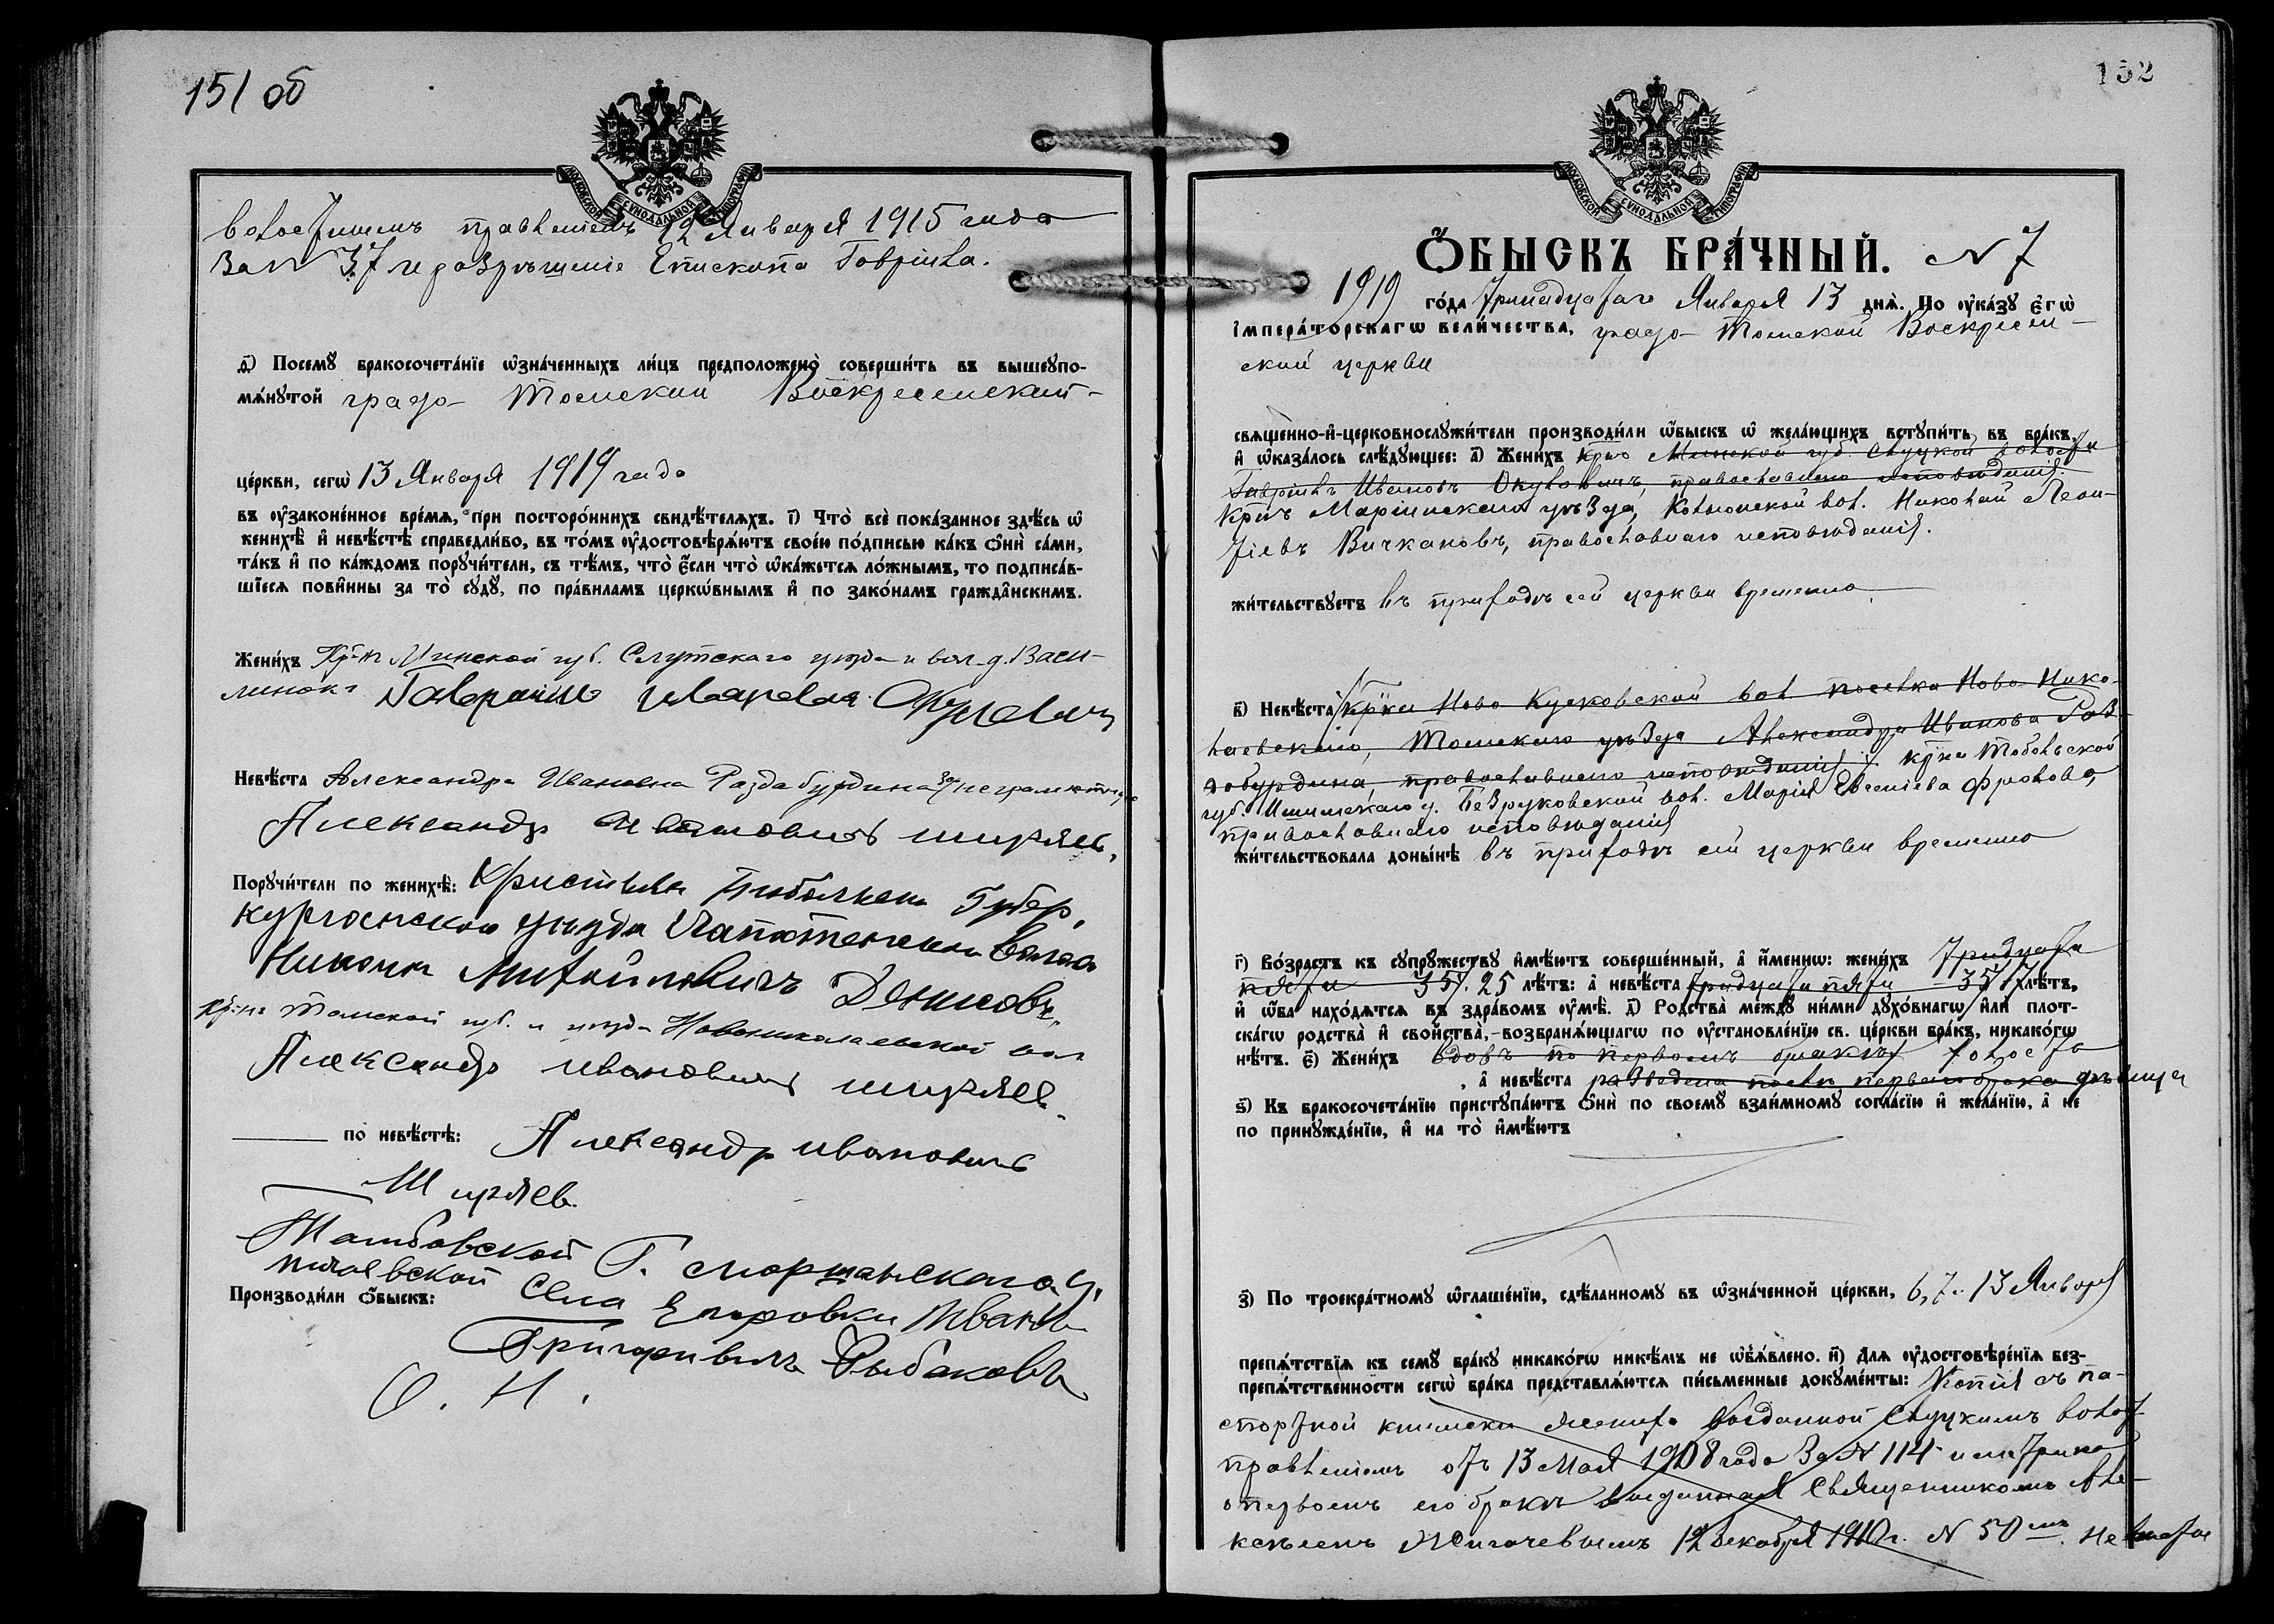 151 об
МОСКОВСКОЙ СѴНОДАЛЬНОЙ ТИПОГРАФІИ
волостнымъ правленіемъ 12 Января 1915 года
За N 37 и разрѣшеніе Епископа Гавріила.
д҃) Посемꙋ̀ бракосочета́нїе ѡ҆зна́ченныхъ ли́цъ предположено̀ соверши́ть въ вышеꙋпо-
мѧ́нꙋтой градо- Томской Воскресенской-
це́ркви, сегѡ̀ 13 Января 1919 года
въ ᲂу҆законе́нное вре́мѧ, при посторо́ннихъ свидѣ́телѧхъ. і҃) Что̀ всѐ пока́занное здѣ́сь ѡ҆
женихѣ̀ и҆ невѣ́стѣ справедли́во, въ то́мъ ᲂу҆достовѣрѧ́ютъ свое́ю по́дписью ка́къ ѻ҆нѝ са́ми,
та́къ и҆ по ка́ждомъ порꙋчи́тели, съ тѣ́мъ, что̀ є҆́сли что̀ ѡ҆ка́жетсѧ ло́жнымъ, то подписа́в-
шїесѧ пови́нны за то̀ сꙋдꙋ̀, по пра́виламъ церкѡ́внымъ и҆ по зако́намъ гражда̑нскимъ.
Жени́хъ Кр-нъ Минской губ. Слутскаго уезда и вол. д. Васи-
линокъ Гавриилъ Ивановъ Окулевичъ
Невѣ́ста Александра Ивановна Раздабурдина за неграмотн.
Александр Иванович Ширяев.
Порꙋчи́тели по женихѣ̀: Крестьянин Тобольскои Губер.
Курганскаго уезда Волос
Михайловичъ Денисовъ
Кр-нъ Томской губ. и уезда Новониколаевской вол
Александр Иванович Ширяев.
по невѣ́стѣ: Александр Иванович
Ширяев.
Тамбовской Г. Моршанскаго У.
Села Егоровки Иванъ
Производи́ли ѻ҆́быскъ:
Григоривичъ Рыбаковъ
О. Н.
152
МОСКОВСКОЙ СѴНОДАЛЬНОЙ ТИПОГРАФІИ
Ѻ҆́БЫСКЪ БРА́ЧНЫЙ. N 7
1919 го́да Тринадцатаго Января 13 днѧ̀. По ᲂу҆ка́зꙋ є҆гѡ̀
і҆мпера́торскагѡ вели́чества, градо- Томской Воскресен-
ской церкви
свѧще́нно-и҆-церковнослꙋжи́тели производи́ли ѡ҆́быскъ ѡ҆ жела́ющихъ вступи́ть въ бра́къ,
и҆ ѡ҆каза́лось слѣ́дꙋющее: а҃) Жени́хъ Кр-нъ Минской губ. Слуцкой волости
Гавріилъ Ивановъ Окулевичъ, православнаго исповѣданія.
Кр-нъ Маріинскаго уѣзда, вол. Николай Леон-
тіевъ Вичкановъ, православнаго исповѣданія.
жи́тельствꙋетъ въ приходѣ сей церкви временно
в҃) Невѣ́ста Кр-ка Ново Кусковской вол. поселка Ново Нико-
лаевскаго, Томскаго уѣзда Александра Иванова Раз-
добурдина, православнаго исповѣданія. Кр-ка Тобольской
губ. Ишимскаго у. Безруковской вол. Марія Евсеніева Фролова,
православнаго исповѣданія
жи́тельствовала доны́нѣ въ приходѣ сей церкви временно
г҃) Во́зрастъ къ сꙋпрꙋ́жествꙋ и҆мѣ́ютъ соверше́нный, а҆ и҆́меннѡ: жени́хъ тридцати
пяти 35. 25 лѣ́тъ: а҆ невѣ́ста тридцати пяти - 35 17 лѣ́тъ,
и҆ ѡ҆́ба нахо́дѧтсѧ въ здра́вомъ ᲂу҆мѣ̀. д҃) Родства̀ междꙋ̀ ни́ми дꙋхо́внагѡ и҆лѝ плот-
ска́гѡ родства̀ и҆ сво́йства̀, возбранѧ́ющагѡ по ᲂу҆становле́нїю св. це́ркви бра́къ, никако́гѡ
нѣ́тъ. є҃) Жени́хъ вдовъ по первомъ бракѣ холостъ
, а҆ невѣ́ста разведена послѣ перваго брака дѣвица
ѕ҃) Къ бракосочета́нїю пристꙋпа́ютъ ѻ҆нѝ по своемꙋ̀ взаи́мномꙋ согла́сїю и҆ жела́нїю, а҆ не
по принꙋжде́нїю, и҆ на то̀ и҆мѣ́ютъ
з҃) По троекра́тномꙋ ѡ҆глаше́нїю, сдѣ́ланномꙋ въ ѡ҆зна́ченной це́ркви, 6, 7 и 13 Января
препѧ́тствїѧ къ семꙋ̀ бра́кꙋ никако́гѡ никѣ́мъ не ѡ҆б̾ѧ́влено. и҃) Длѧ ᲂу҆достовѣре́нїѧ без-
препѧ́тственности сегѡ̀ бра́ка представлѧ́ютсѧ пи́сьменные докꙋме́нты: Копія съ па-
спортной книжки жениха выданной Слуцкимъ волост.
правленіемъ отъ 13 Мая 1908 года За N 114 и метрика
о первомъ его бракѣ выданная Священникомъ Але-
ксѣемъ Жигачевымъ 12 Декабря 1910 г. N 50